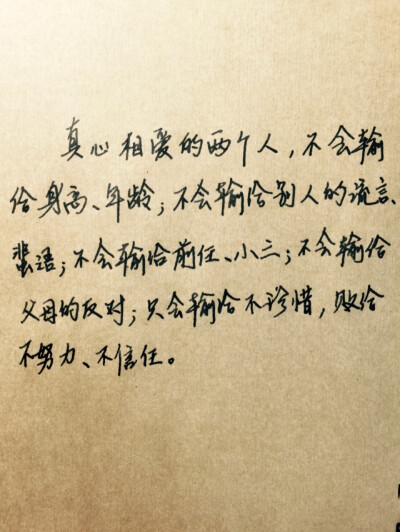 真心相爱的两个人，不会输
给身高、年龄；不会输给别人的流言、
蜚语；不会输给前任、小三；不会输给
父母的反对；只会输给不珍惜，败给
不努力、不信任。